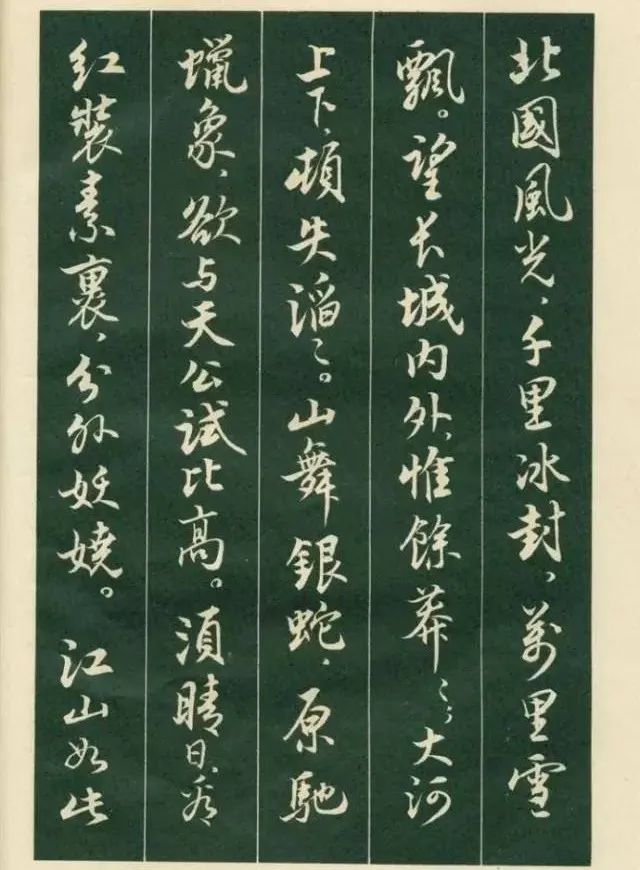 北國風光，千里冰封，萬里雪
飄。望长城内外，惟餘莽〻；大河
上下，頓失滔〻。山舞銀蛇，原馳
蠟象，欲与天公試比高。須晴日，看
红裝素裹，分外妖嬈。江山如此